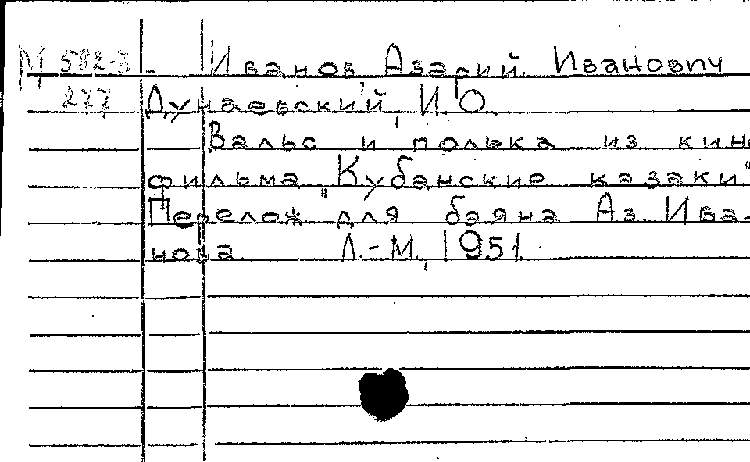 М 582-3 - Иванов, Азарий Иванович
277 Дунаевский, И.О.
Вальс и полька из кино
фильма „Кубанские казаки"
Перелож для баяна Аз. Ива-
нова. Л.-М., 1951.